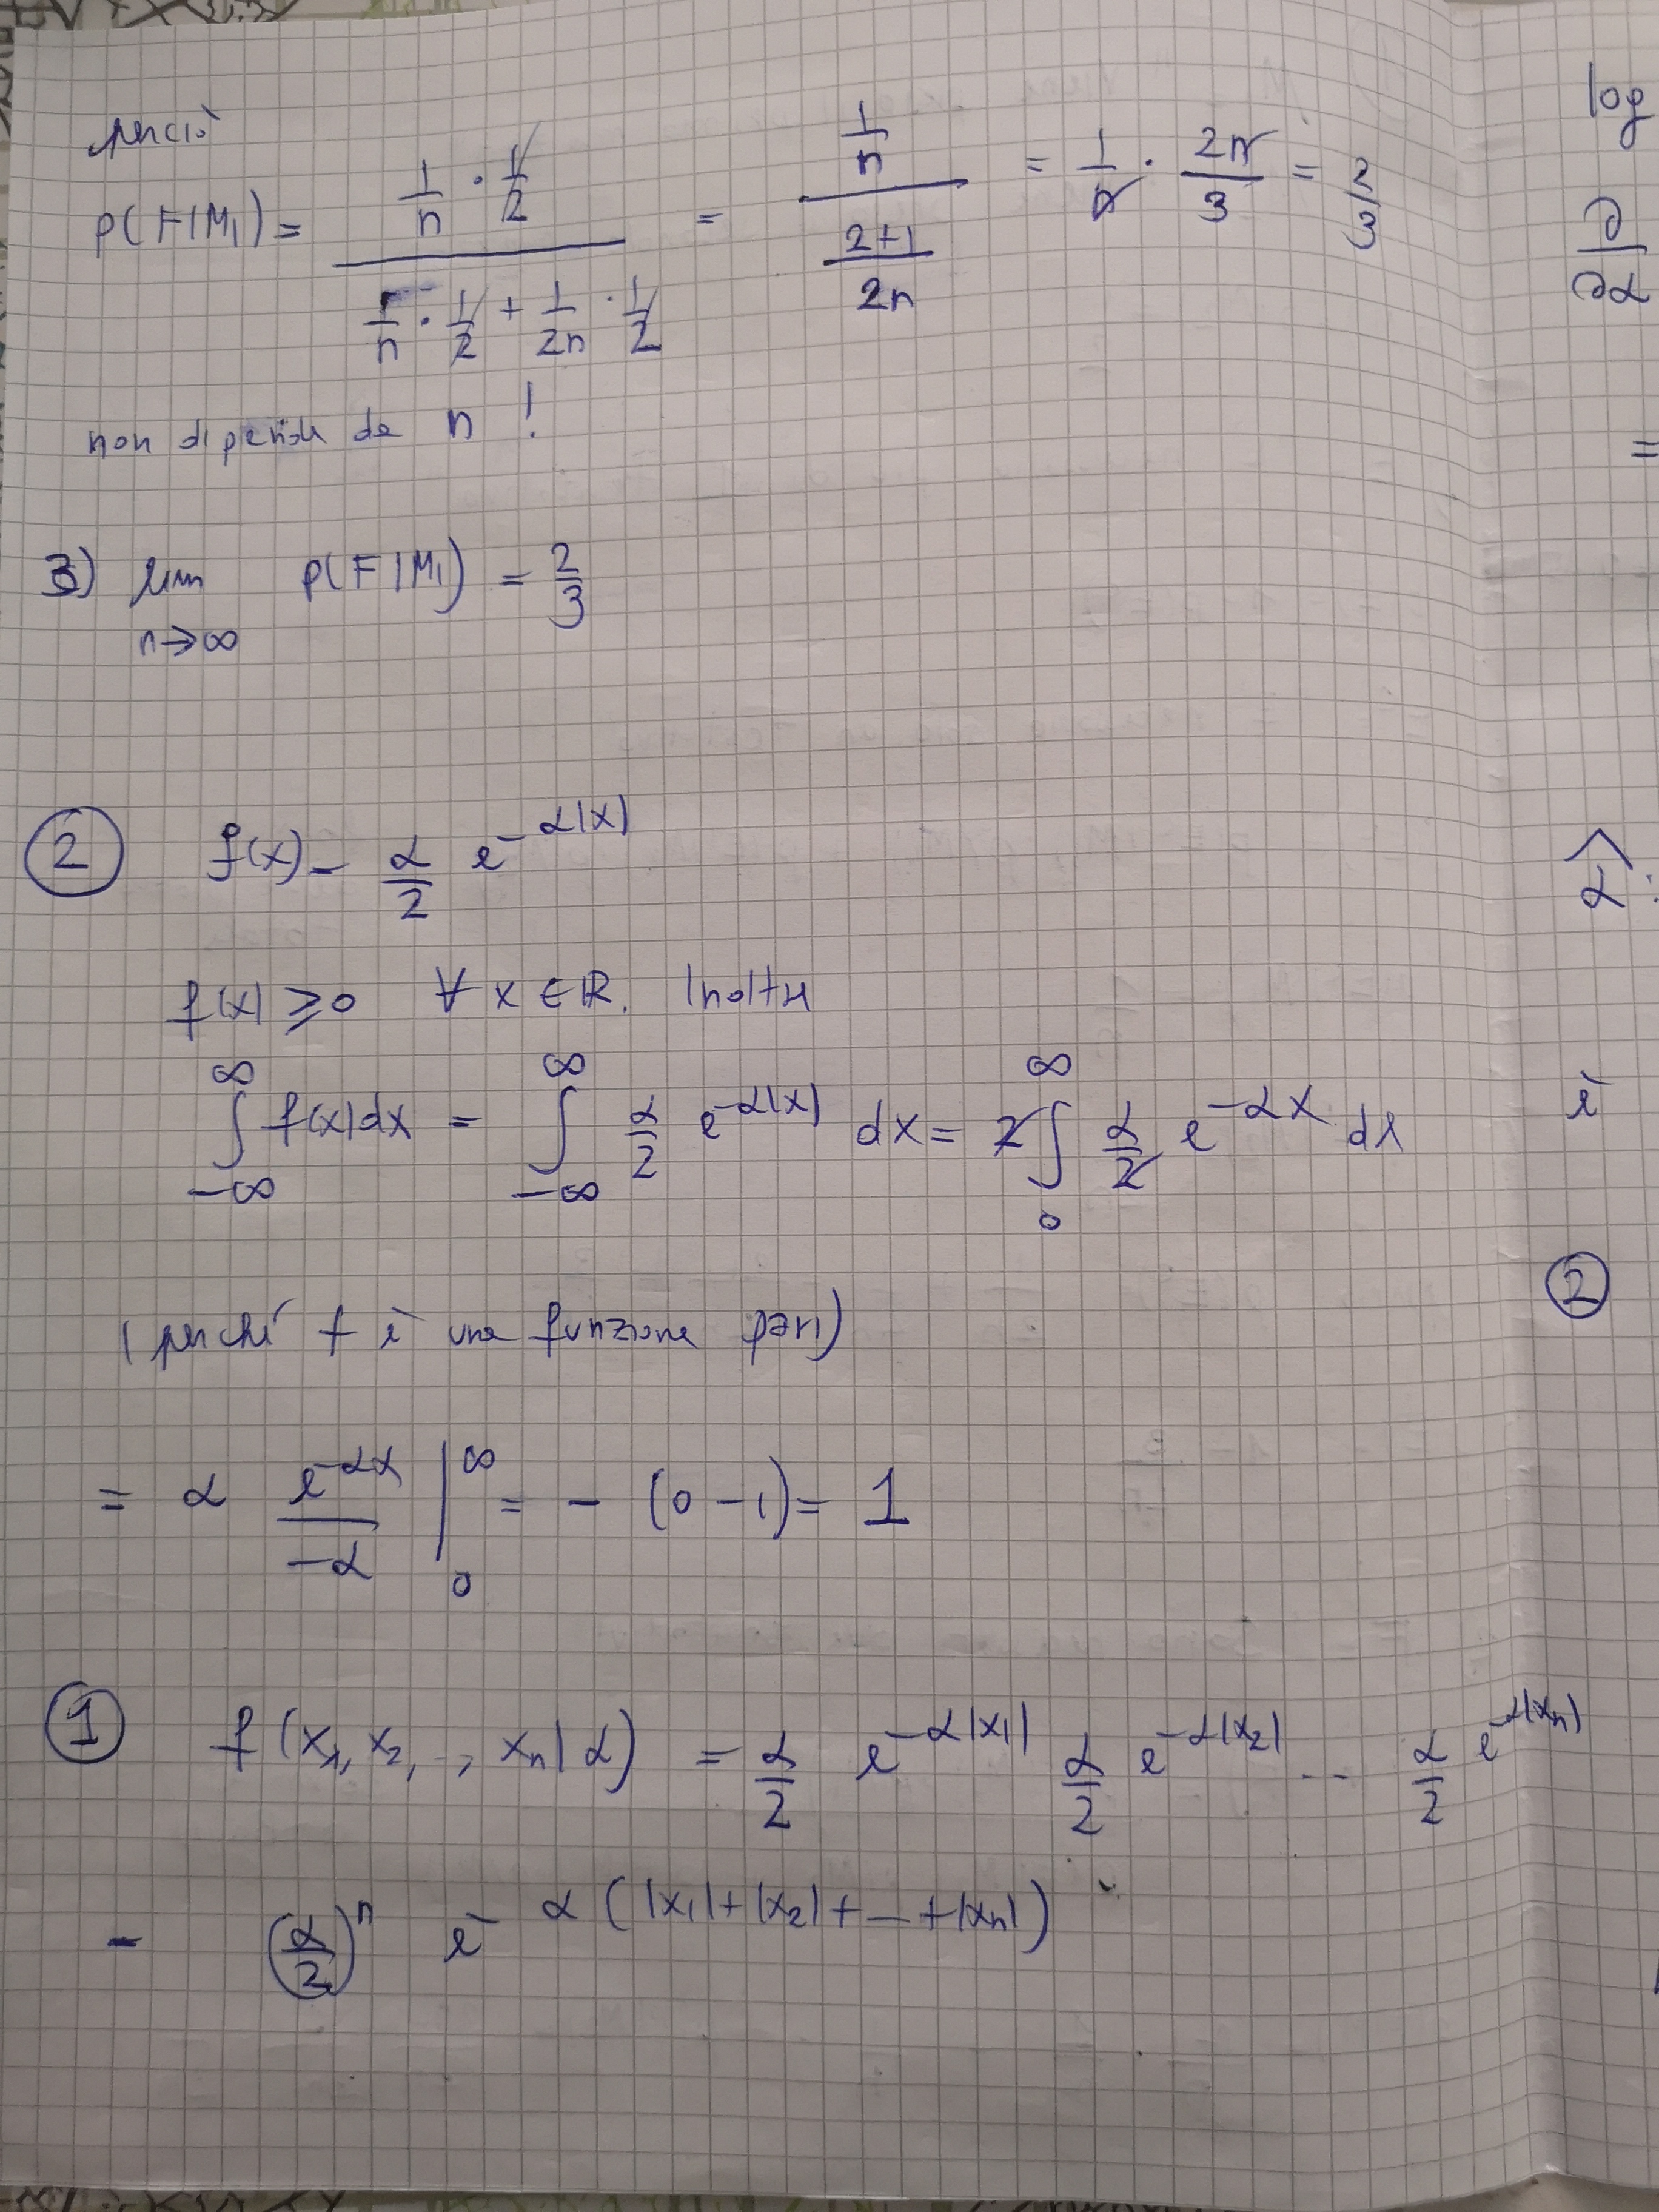 perciò
P(F|M₁) = (1/n · 1/2) / (1/n · 1/2 + 1/2n · 1/2) = (1/n) / ((2+1)/2n) = 1/n · 2n/3 = 2/3
non dipende da n !
3) lim n→∞ P(F|M₁) = 2/3
② f(x) = α/2 e^-α|x|
f(x) ≥ 0 ∀ x ∈ ℝ. Inoltre
∫_-∞^∞ f(x)dx = ∫_-∞^∞ α/2 e^-α|x| dx = 2∫_0^∞ α/2 e^-αx dx
(perché f è una funzione pari)
= α e^-αx/-α |_0^∞ = - (0-1) = 1
① f(x₁, x₂, .., xₙ|α) = α/2 e^-α|x₁| α/2 e^-α|x₂| -- α/2 e^-α|xₙ|
= (α/2)^n e^-α(|x₁|+|x₂|+--+|xₙ|)
log
∂/∂α
=
α̂ :
è
②